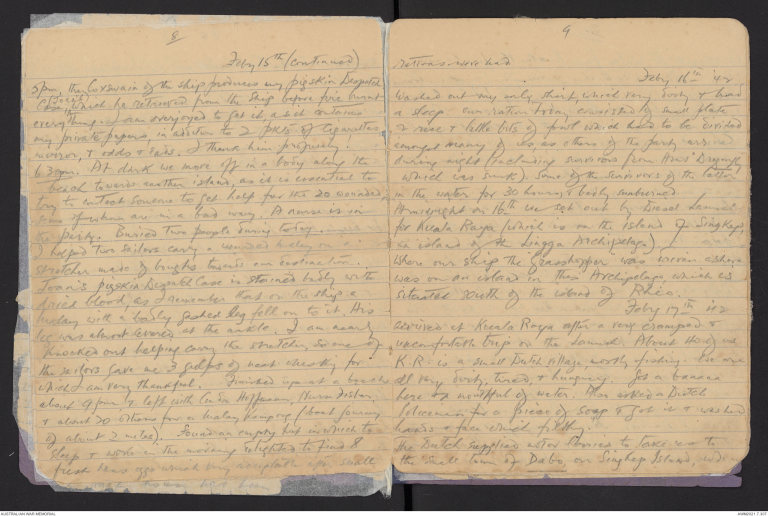 8
Feby 15th (continued)
5pm, the Coxswain of the ship produces my pigskin Despatch
Case, which he retrieved from the ship before fire burnt
everything. I am overjoyed to get it, as it contains
my private papers, in addition to 2 pkts of cigarettes,
mirror, & odds & ends. I thank him profusely.
6.30pm. At dark we move off in a body along the
beach towards another island, as it is essential to
try to contact someone to get help for the 20 wounded,
some of whom are in a bad way. A nurse is in
the party. Buried two people during today.
I helped two sailors carry a wounded on a
stretcher made of boughs towards our destination.
Joan's pigskin Despatch Case is stained badly with
dried blood, as I remember that on the ship a
Malay with a badly gashed leg fell on to it. His
leg was almost severed at the ankle. I am nearly
knocked out helping carry the stretcher, so one of
the sailors gave me 3 gulps of neat whisky for
which I am very thankful. Finished up at a beach
about 9pm & left with Hoffmann, Nurse
& about 20 others for a Malay Kampong (boat journey
of about 2 miles). Found an empty hut in which to
sleep & woke in the morning delighted to find 8
fresh hens eggs which were small
9
rations were had
Feby 16th '42
Washed out my only shirt, which very dirty & had
a sleep. Our ration today consisted of small plate
of rice & little bits of fruit which had to be divided
amongst many of us, as others of the party arrived
during night (including survivors from HMS "Dragonfly"
which was sunk). Some of the survivors of the latter
in the water for 30 hours & badly sunburned.
At midnight on 16th we set out by Diesel Launch
for Kuala Raya (which is on the island of Singkep,
an island of the Lingga Archipelago)
Where our ship the "Grasshopper" was driven ashore
was on an island in this Archipelago, which is
situated south of the island of Rhio.
Feby 17th '42
Arrived at Kuala Raya after a very cramped &
uncomfortable trip on the launch. About
K.R. is a small Dutch village, mostly fishing. We are
all very dirty, tired, & hungry. Got a banana
here & a mouthful of water. Then asked a Dutch
Policeman for a piece of soap & got it & washed
hands & face which filthy.
The Dutch supplied motor lorries to take us to
the small town of Dabo, on Singkep Island,
AUSTRALIAN WAR MEMORIAL